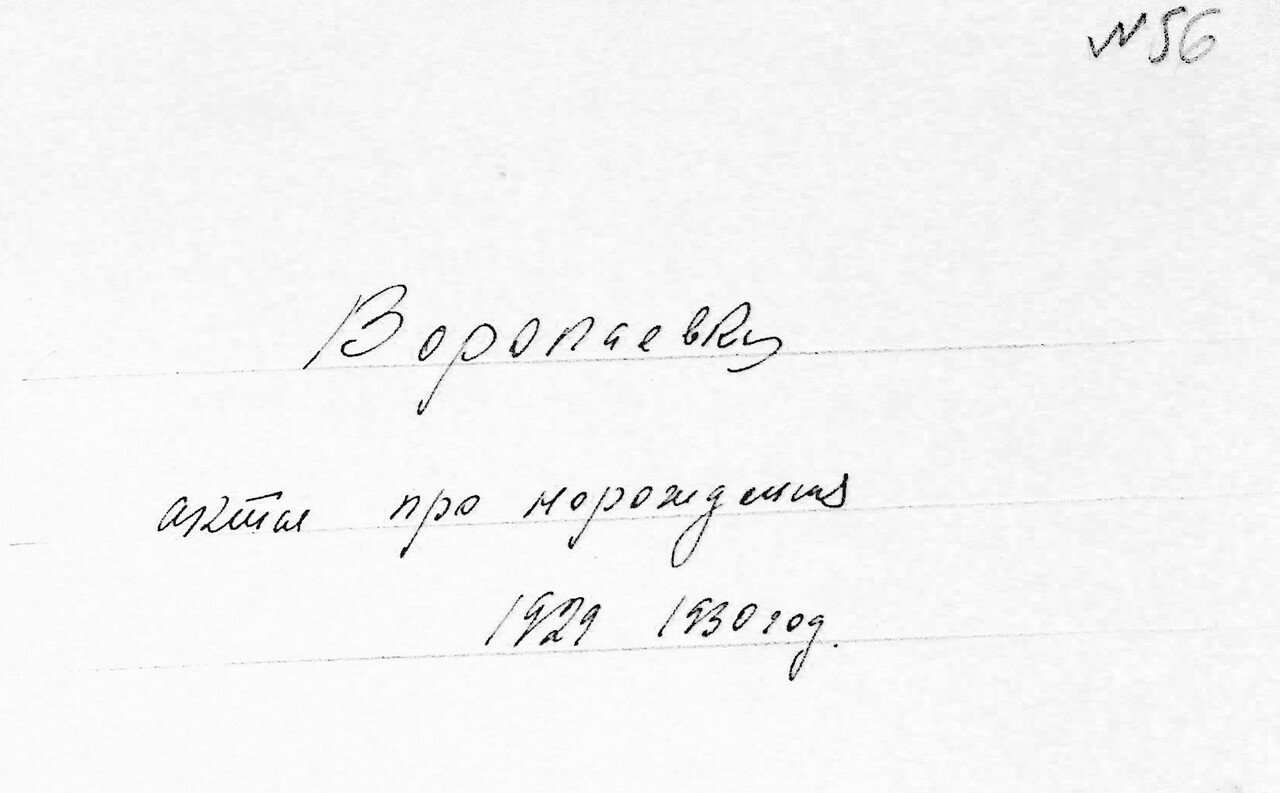 № 56
Воропаевку
акты про нарождения
1929 1930 год.